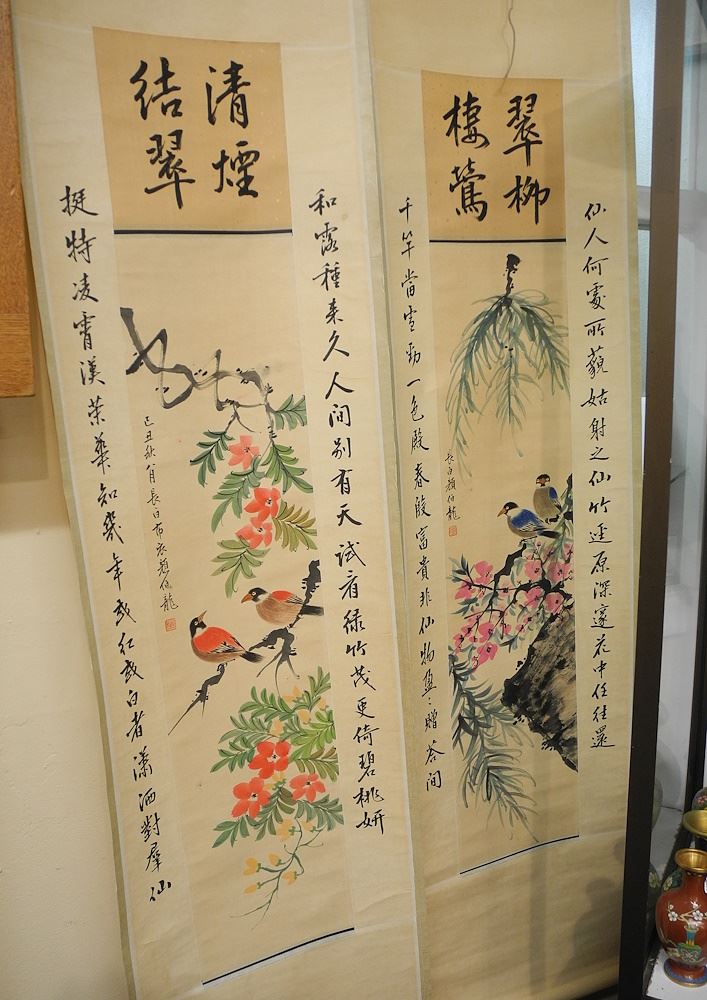 翠柳
棲鶯
仙人何處所藐姑射之仙竹逕原深邃花中任往還
千竿當雪勁一色殿春殷富貴非仙物盈〻贈荅間
長白顏伯龍
清煙
結翠
和露種来久人间别有天試看绿竹茂更倚碧桃妍
挺特凌霄漢荣華知幾年或红或白者瀟洒對羣仙
己丑秋八月長白布衣顏伯龍